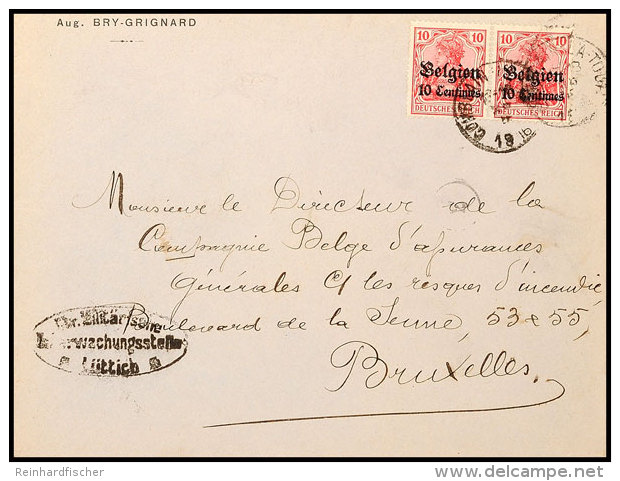 Aug. BRY-GRIGNARD
10 10
Belgien
10 Centimes
DEUTSCHES REICH
10 10
Belgien
10 Centimes
DEUTSCHES REICH
Monsieur le Directeur de la
Compagnie Belge d'assurances
Générales Ct les risques d'incendie,
Boulevard de la Senne, 53 & 55,
Bruxelles.
Militärische
Überwachungsstelle
Lüttich
Reinhardfischer
delcampe.net